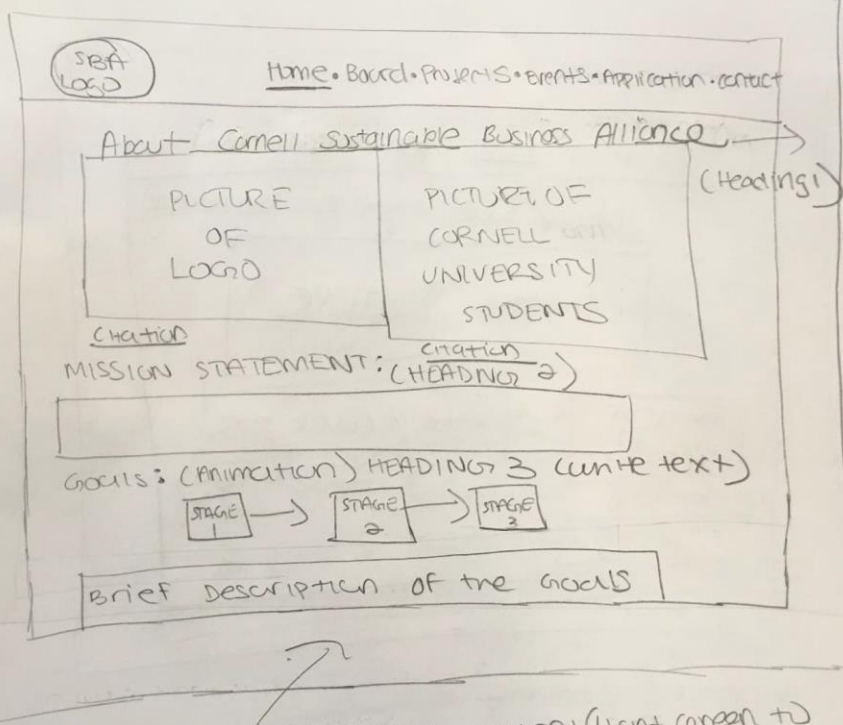 SBA
LOGO
Home • Board • Projects • Events • Application • contact
About Cornell Sustainable Business Alliance
(Heading 1)
PICTURE
OF
LOGO
PICTURE OF
CORNELL
UNIVERSITY
STUDENTS
Citation
Citation
MISSION STATEMENT: (HEADING 2)
Goals: (Animation) HEADING 3 (white text)
STAGE
1
STAGE
2
STAGE
3
Brief Description of the Goals
(light green to